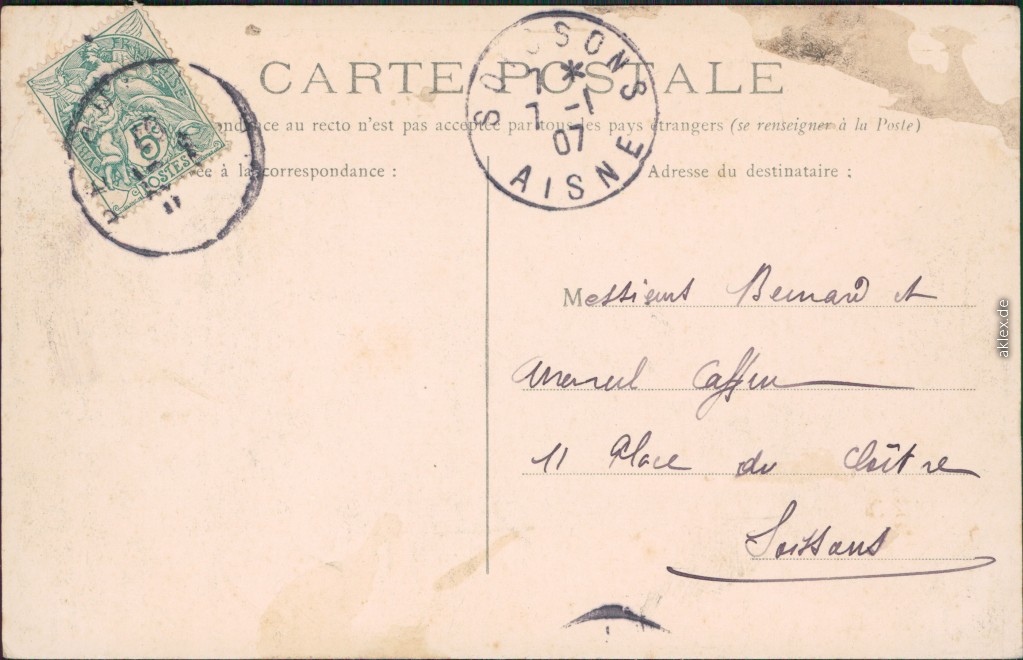 CARTE POSTALE
ndance au recto n'est pas acceptée par tous les pays étrangers (se renseigner à la Poste)
ée à la correspondance :
Adresse du destinataire :
SOISSONS
7 *
7 -1
07
AISNE
POSTES
Messieurs Bernard et
Marcel
11 Place du Cloître
Soissons
aklex.de